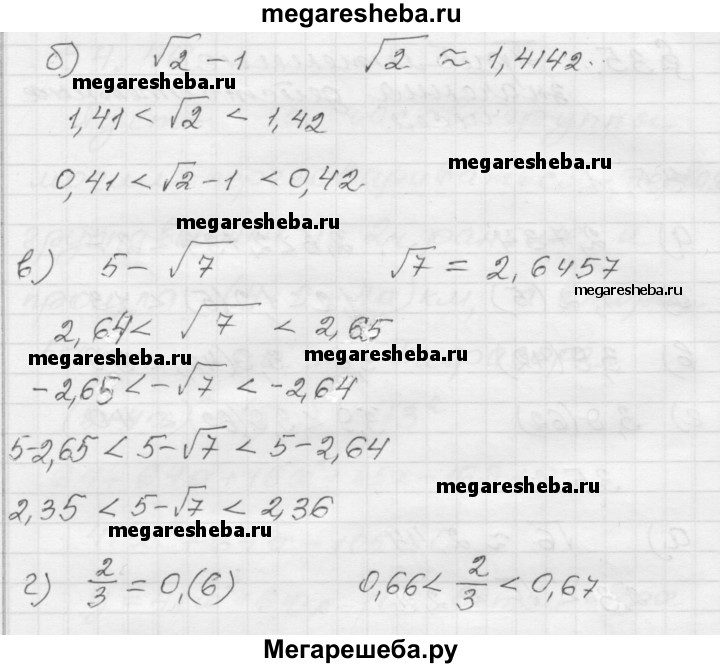 megaresheba.ru
б) √2 − 1 √2 ≈ 1,4142..
megaresheba.ru
1,41 < √2 < 1,42
megaresheba.ru
0,41 < √2 − 1 < 0,42.
megaresheba.ru
в) 5 − √7 √7 = 2,6457
megaresheba.ru
2,64 < √7 < 2,65
megaresheba.ru megaresheba.ru
−2,65 < −√7 < −2,64
5−2,65 < 5−√7 < 5−2,64
megaresheba.ru
2,35 < 5−√7 < 2,36
megaresheba.ru
г) 2/3 = 0,(6) 0,66 < 2/3 < 0,67
Мегарешеба.ру